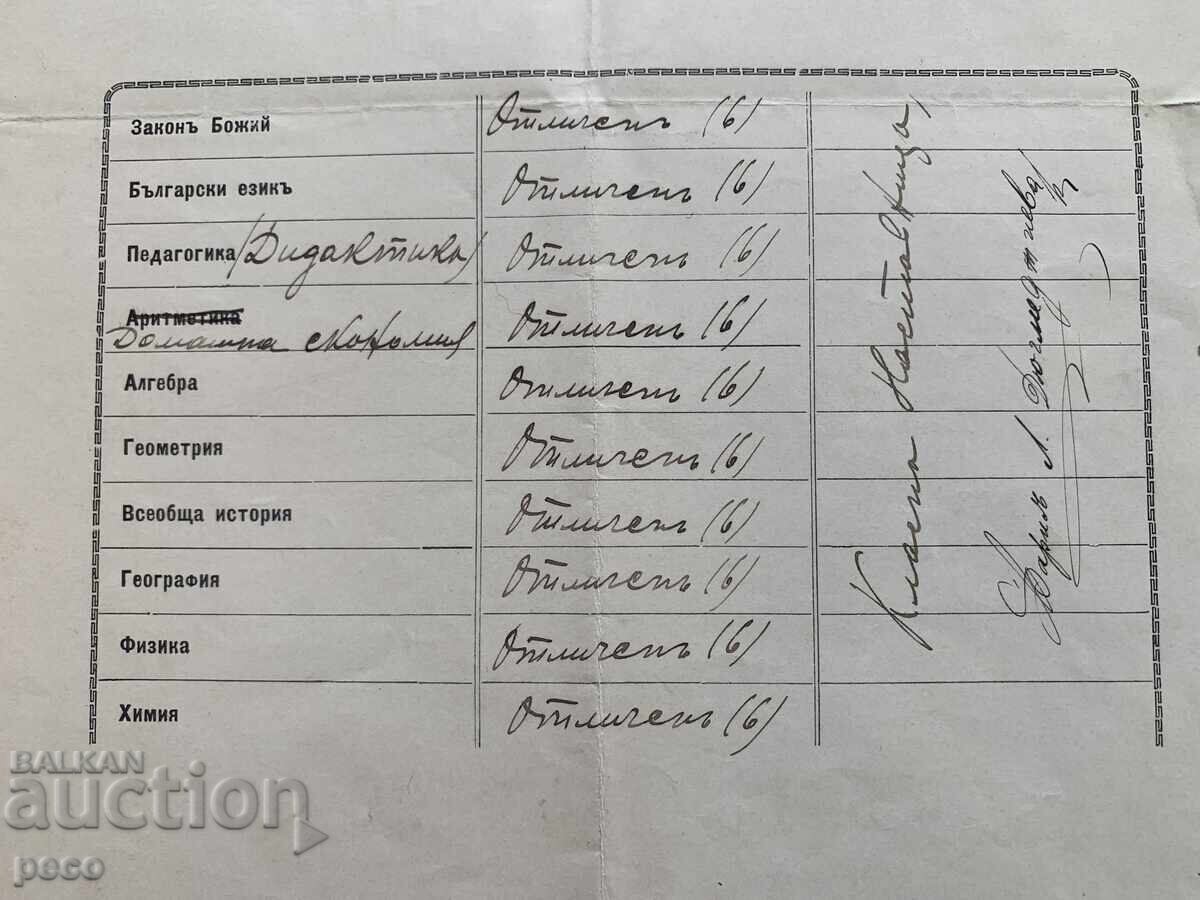 Законъ Божий Отличенъ (6)
Български езикъ Отличенъ (6)
Педагогика (Дидактика) Отличенъ (6)
Аритметика
Домашна економия Отличенъ (6)
Алгебра Отличенъ (6)
Геометрия Отличенъ (6)
Всеобща история Отличенъ (6)
География Отличенъ (6)
Физика Отличенъ (6)
Химия Отличенъ (6)
Класна Наставница,
Л.
BALKAN
auction
peco